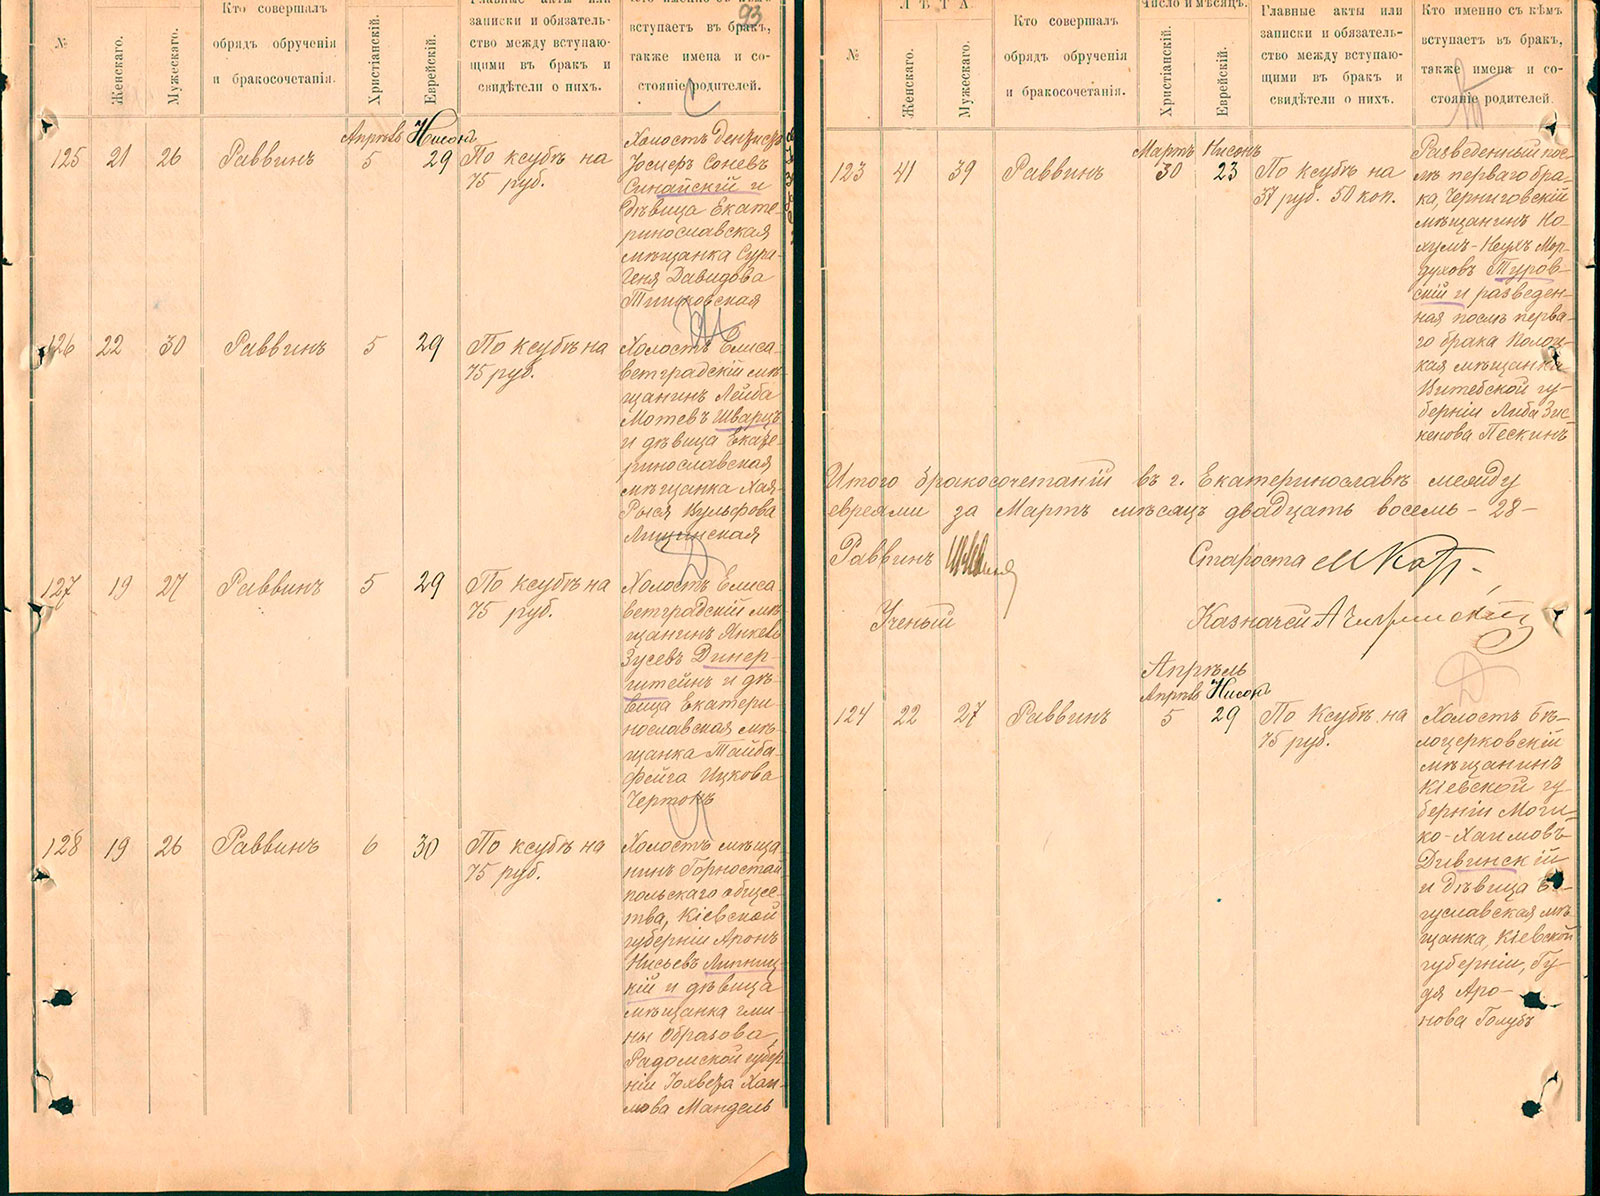 93
№
Женскаго.
Мужескаго.
Кто совершалъ
обрядъ обрученія
и бракосочетанія.
Христіанскій.
Еврейскій.
Главные акты или
записки и обязатель-
ство между вступаю-
щими въ бракъ и
свидѣтели о нихъ.
Кто именно съ кѣмъ
вступаетъ въ бракъ,
также имена и со-
стояніе родителей.
С
Апрѣль Нисонъ
125 21 26 Раввинъ 5 29 По ксубѣ на
75 руб.
Холостъ
Іосифъ Соневъ
Синайскій и
дѣвица Екате-
ринославская
мѣщанка Сура-
Геня Давидова
Ш
126 22 30 Раввинъ 5 29 По ксубѣ на
75 руб.
Холостъ Елиса-
ветградскій мѣ-
щанинъ Лейба
Мотевъ Шварцъ
и дѣвица Екате-
ринославская
мѣщанка Хая-
Рыся Вульфова
Д
127 19 27 Раввинъ 5 29 По ксубѣ на
75 руб.
Холостъ Елиса-
ветградскій мѣ-
щанинъ Янкев
Зусевъ Динер-
штейнъ и дѣ-
вица Екатери
нославская мѣ-
щанка Тайба-
Фейга Ицкова
Чертокъ
128 19 26 Раввинъ 6 30 По ксубѣ на
75 руб.
Холостъ мѣща
нинъ Горностай
польскаго общес-
тва, Кіевской
губерніи Аронъ
Нисьевъ Липниц-
кій и дѣвица
мѣщанка гми-
ны
Радомской губер
ніи Хаи-
мова Мандель
ЛѢТА
№
Женскаго.
Мужескаго.
Кто совершалъ
обрядъ обрученія
и бракосочетанія.
Число и мѣсяцъ.
Христіанскій.
Еврейскій.
Главные акты или
записки и обязатель-
ство между вступаю-
щими въ бракъ и
свидѣтели о нихъ.
Кто именно съ кѣмъ
вступаетъ въ бракъ,
также имена и со-
стояніе родителей.
Т
Мартъ Нисонъ
123 41 39 Раввинъ 30 23 По ксубѣ на
37 руб. 50 коп.
Разведенный пос-
лѣ перваго бра-
ка, Черниговскій
мѣщанинъ Но-
хумъ- Мор-
духовъ Туров-
скій и разведен-
ная послѣ перва-
го брака Полоц-
кая мѣщанка
Витебской гу-
берніи Либа Зис-
кенова Пескинъ
Итого бракосочетаній въ г. Екатеринославѣ между
евреями за Мартъ мѣсяцъ двадцать восемь - 28 -
Раввинъ Староста
Ученый Казначей
Апрѣль
Д
Апрѣль Нисонъ
124 22 27 Раввинъ 5 29 По Ксубѣ на
75 руб.
Холостъ Бѣ-
лоцерковскій
мѣщанинъ
Кіевской гу-
берніи
ко-Хаимовъ
Дивинскій
и дѣвица Бо-
гуславская мѣ-
щанка, Кіевской
губерніи, Гу-
дя Аро-
нова Голубъ